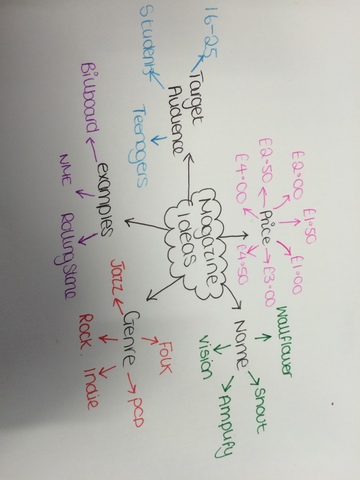 Magazine
Ideas
Target
Audience
16-25
Students
Teenagers
Price
£2.50
£2.00
£1.50
£1.00
£3.00
£4.50
£4.00
Name
Wallflower
Snout
Amplify
Vision
Genre
Folk
Pop
Indie
Rock
Jazz
examples
Billboard
NME
Rolling Stone